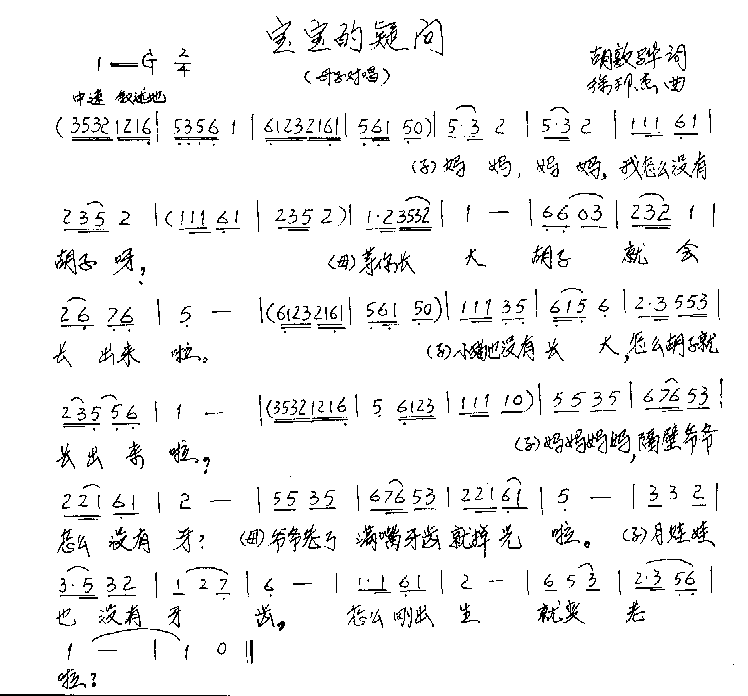 宝宝的疑问
(母子对唱)
1=G 2/4
胡敦骅 词
徐邦杰 曲
中速 叙述地
(3532 1216 | 5356 1 | 61232161 | 561 50) | 5·3 2 | 5·3 2 | 111 61 |
(子)妈 妈, 妈 妈, 我怎么没有
235 2 | (111 61 | 235 2) | 1·23532 | 1 — | 66 03 | 232 1 |
胡子 呀? (母)等你长 大 胡子 就 会
26 76 | 5 — | (61232161 | 561 50) | 111 35 | 615 6 | 2·3 553 |
长 出来 啦。 (子)小猫也没有长 大,怎么胡子就
235 56 | 1 — | (35321216 | 5 6123 | 111 10) | 55 35 | 676 53 |
长 出 来 啦? (子)妈妈妈妈,隔壁爷爷
221 61 | 2 — | 55 35 | 676 53 | 221 61 | 5 — | 33 2 |
怎么 没有 牙? (母)爷爷老了 满嘴牙齿 就掉 光 啦。 (子)月娃娃
3·5 32 | 1 27 | 6 — | 1·1 61 | 2 — | 65 3 | 2·3 56 |
也 没有 牙 齿, 怎么 刚出 生 就变 老
1 — | 1 0 ‖
啦?